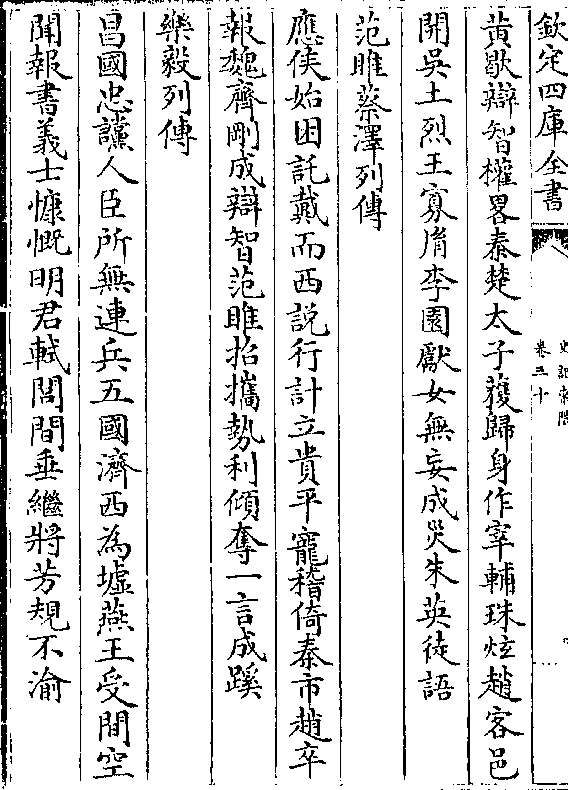 欽定四庫全書
史記索隱
卷三十
黄歇辯智權畧秦楚太子䕶歸身作宰輔珠炫趙客邑
開吳土烈王寡胤李園獻女無妄成災朱英徒語
范雎蔡澤列傳
應侯始困託戴而西說行計立貴平寵稽倚秦市趙卒
報魏齊剛成辯智范雎招攜勢利傾奪一言成蹊
樂毅列傳
昌國忠讜人臣所無連兵五國濟西為墟燕王受間空
聞報書義士慷慨明君軾閭間垂繼將芳規不渝